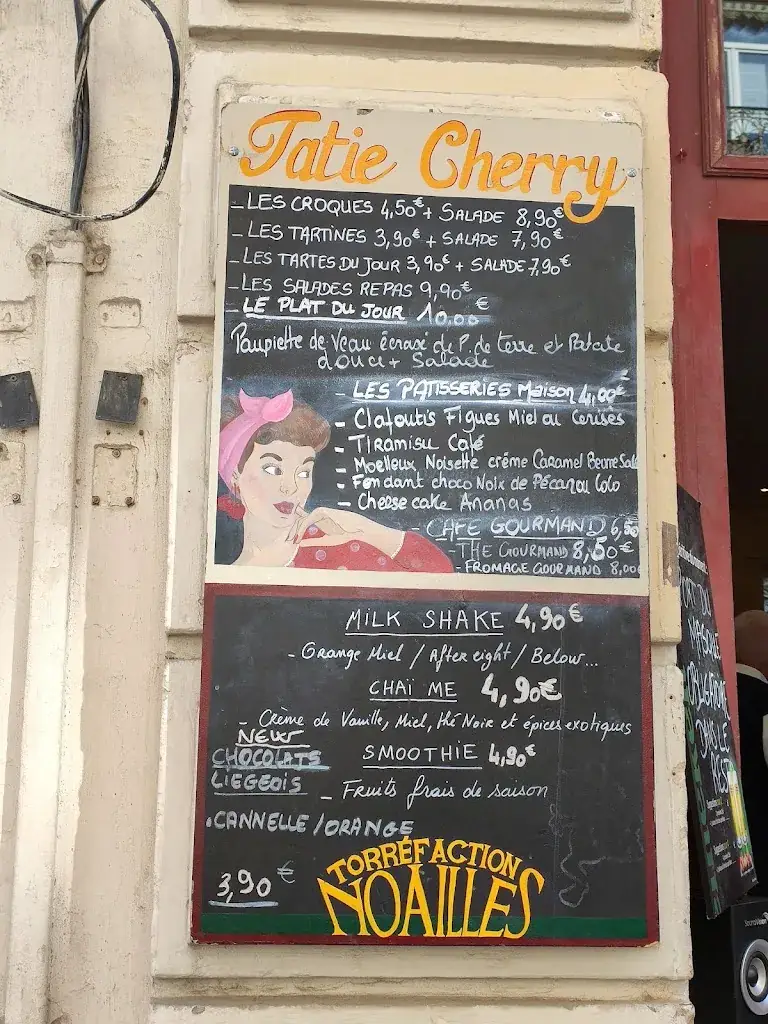 Tatie Cherry
- LES CROQUES 4,50€ + SALADE 8,90€
- LES TARTINES 3,90€ + SALADE 7,90€
- LES TARTES DU JOUR 3,90€ + SALADE 7,90€
- LES SALADES REPAS 9,90€
- LE PLAT DU JOUR 10,00€
Paupiette de Veau écrasé de P. de terre et Patate
douce + Salade
- LES PATISSERIES Maison 4,00€
- Clafoutis Figues Miel ou Cerises
- Tiramisu Café
- Moelleux Noisette crème Caramel Beurre Salé
- Fondant choco Noix de Pécan ou Coco
- Cheese cake Ananas
- CAFE GOURMAND 6,50
- THE GOURMAND 8,50€
- FROMAGE GOURMAND 8,00€
MILK SHAKE 4,90€
- Orange Miel / After eight / Below...
CHAÏ ME 4,90€
- Crème de Vanille, Miel, thé Noir et épices exotiques
NEW
CHOCOLATS
LIEGEOIS
SMOOTHIE 4,90€
- Fruits frais de saison
• CANNELLE / ORANGE
3,90€
TORRÉFACTION
NOAILLES